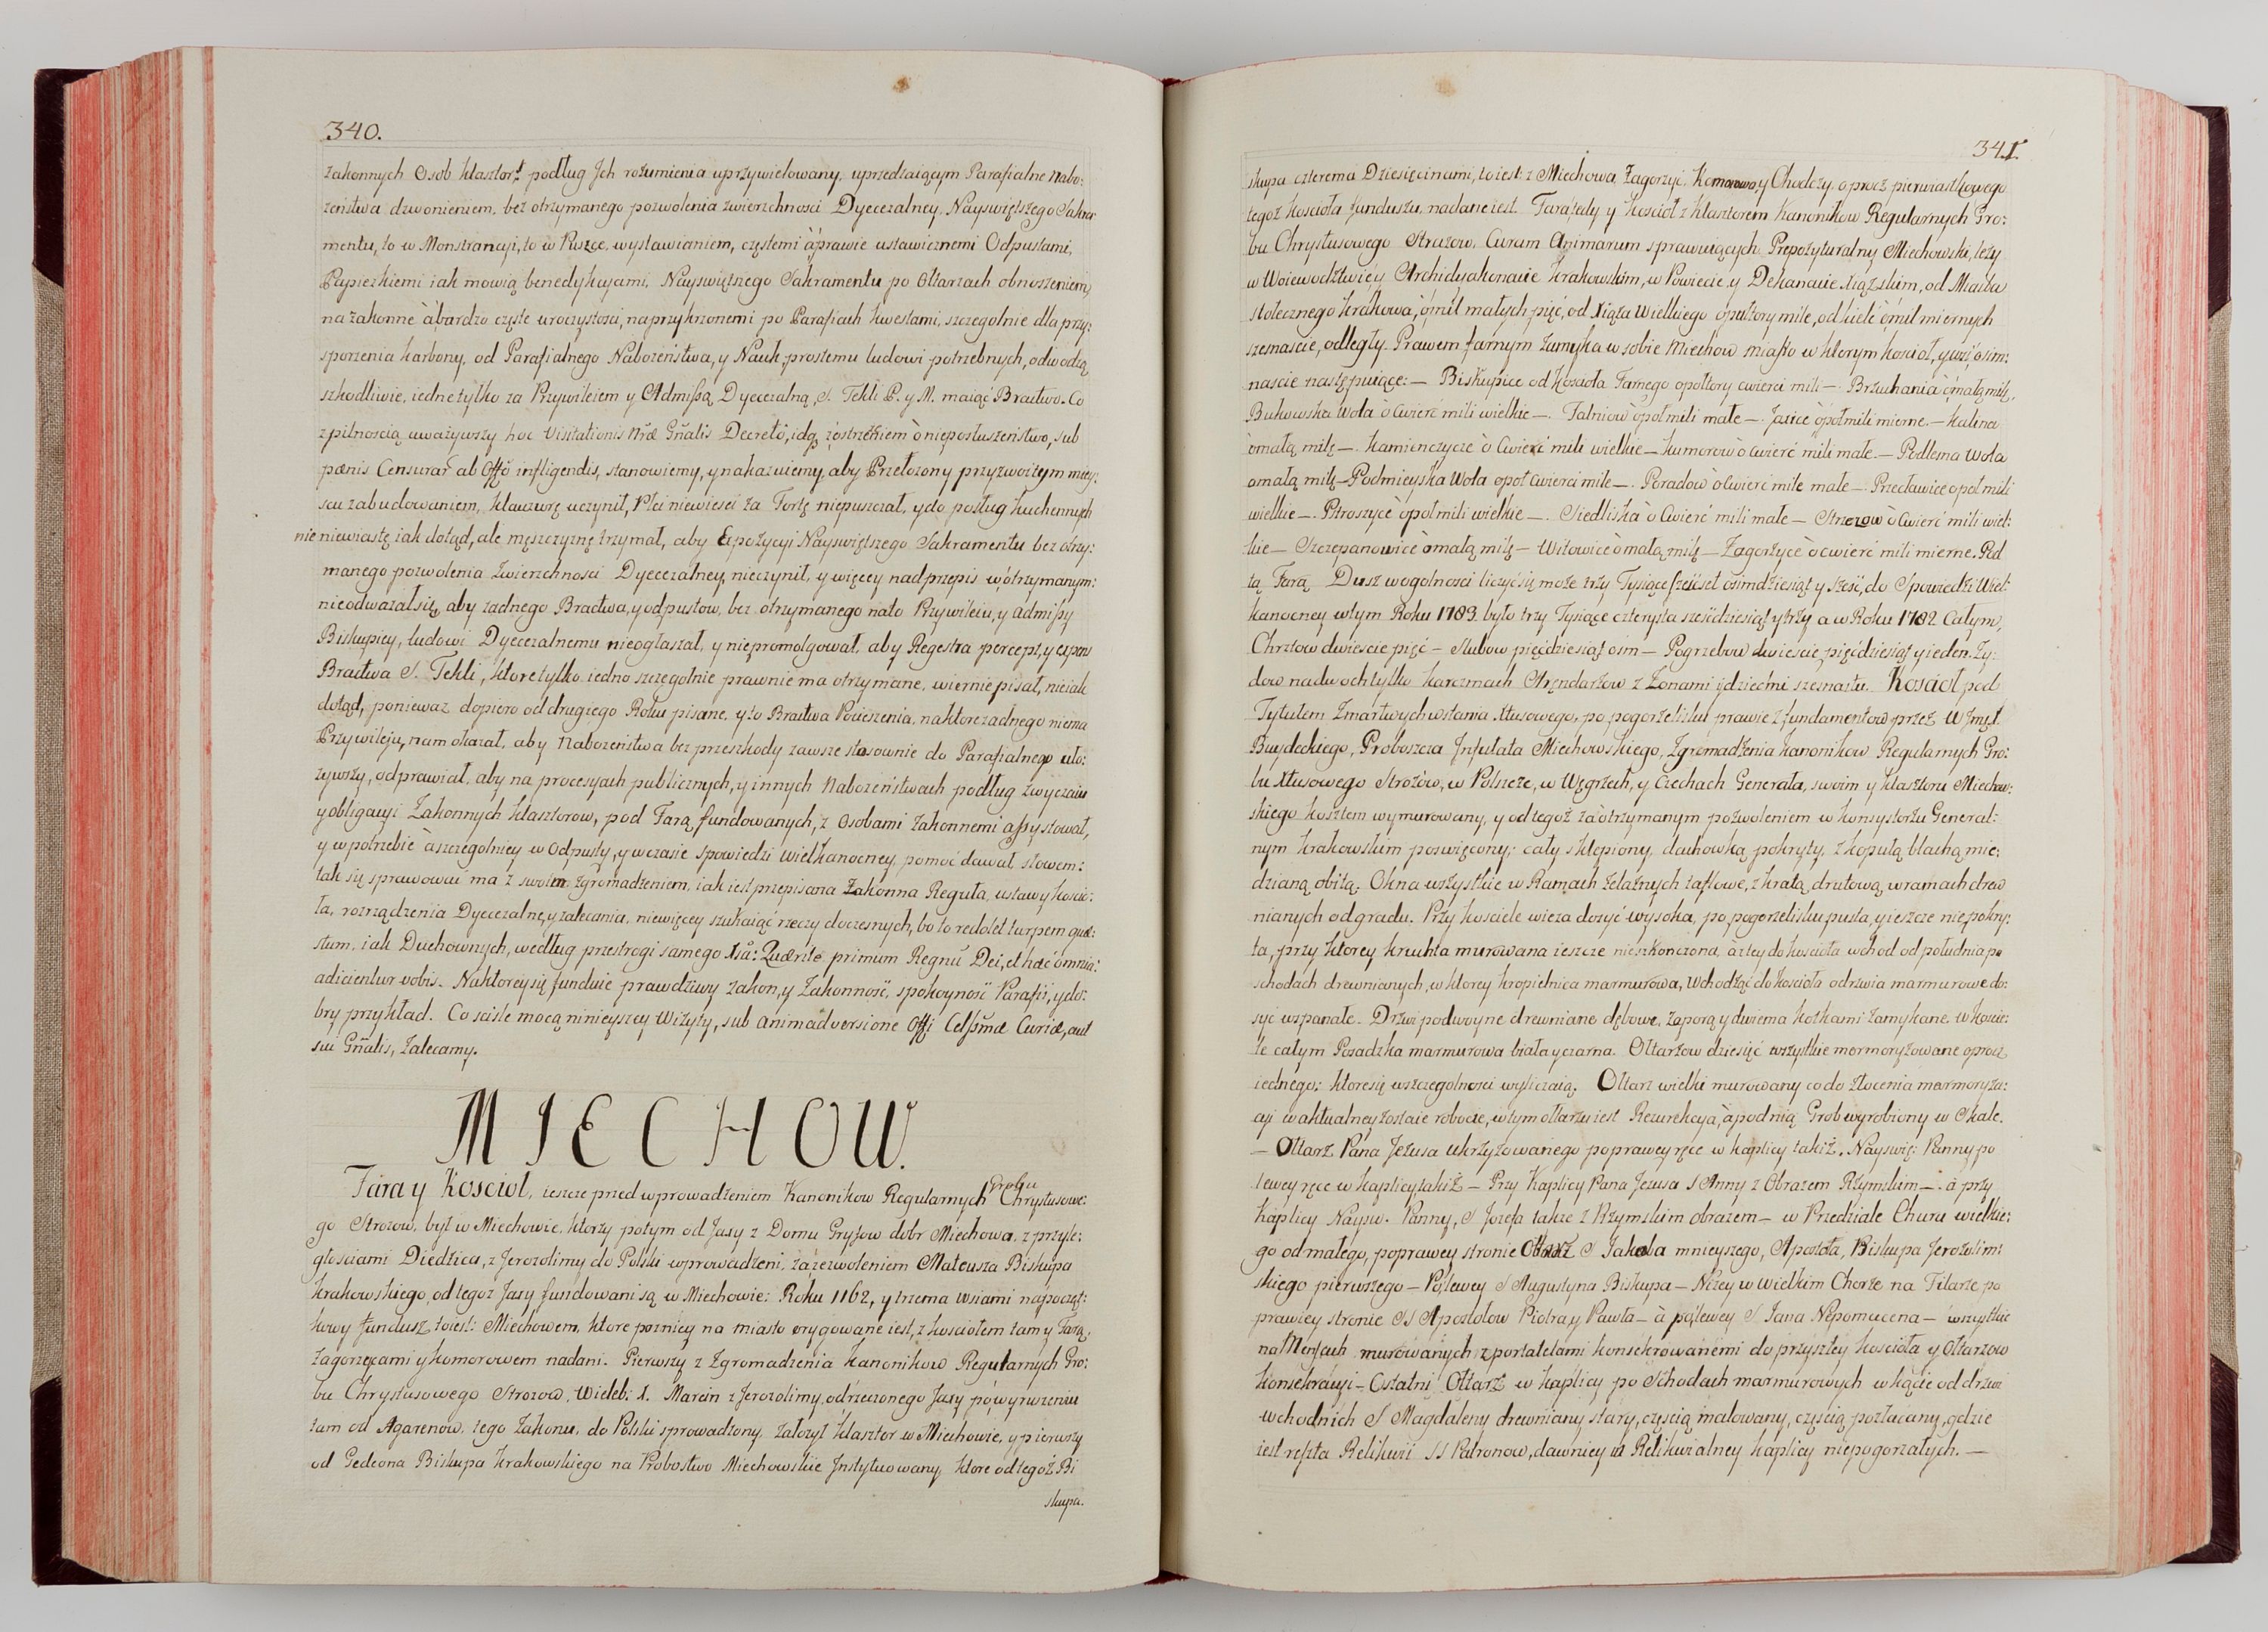 340.
zakonnych Osob klasztor: podług Jch rozumienia uprzywilowany, uprzedzaiącym Parafialne Nabo:
żeństwa dzwonieniem, bez otrzymanego pozwolenia zwierzchnosci Dyecezalney, Nayswiętszego Sakra
mentu, to w Monstrancyi, to w Puszce, wystawianiem, częstemi à prawie ustawicznemi Odpustami,
Papiezkiemi iak mowią benedykcyami, Nayswiętszego Sakramentu po Ołtarzach obnoszeniem,
na zakonne à bardzo częste uroczystosci, naprzykrzonemi po Parafiach kwestami, szczegolnie dla przy:
sporzenia karbony, od Parafialnego Nabożeństwa, y Nauk, prostemu ludowi potrzebnych, odwodzą
szkodliwie, iedne tylko za Przywileiem y Admissą Dyecezalną, S. Tekli P. y M. maiąc Bractwo. Co
z pilnoscią uważywszy hoc Visitationis Nræ Gñalis Decreto, idą zostrzeżeniem ò nieposłuszeństwo, sub
pœnis Censurar: ab Offo infligendis, stanowiemy, y nakazuiemy, aby Przełożony przyzwoitym miey:
scu zabudowaniem, klauzurę uczynił, Płci niewiesci za Fortę niepuszczał, y do posług kuchennych
nie niewiastę iak dotąd, ale męszczyznę trzymał, aby Expozycyi Nayswiętszego Sakramentu bez otrzy:
manego pozwolenia Zwierzchnosci Dyecezalney, nieczynił, y więcey nad przepis w otrzymanym:
nieodważał się, aby żadnego Bractwa, y odpustow, bez otrzymanego na to Przywileiu, y Admissy
Biskupiey, ludowi Dyecezalnemu nieogłaszał, y niepromolgował, aby Regestra percept, y expens
Bractwa S. Tekli, ktore tylko iedno szczegolnie prawnie ma otrzymane, wiernie pisał, nie iak
dotąd, poniewaz dopiero od drugiego Roku pisane, y to Bractwa Pocieszenia, na ktore zadnego niema
Przywileju, nam okazał, aby Nabożeństwa bez przeszkody zawsze stosownie do Parafialnego uło:
żywszy, odprawiał, aby na procesyach publicznych, y innych Nabożeństwach podług zwyczaiu
y obligacyi Zakonnych klasztorow, pod Farą fundowanych, z Osobami zakonnemi assystował,
y w potrzebie à szczegolniey w Odpusty, y w czasie spowiedzi wielkanocney pomoc dawał, słowem:
tak się sprawować ma z swoim zgromadzeniem, iak iest przepisana Zakonna Reguła, ustawy koscio:
ła, rozrządzenia Dyecezalne, y zalecania, niewięcey szukaiąc rzeczy doczesnych, bo to redolet turpem quæ:
stum, iak Duchownych, według przestrogi samego Xsa: Quærite primum Regnũ Dei, et hæc omnia
adicientur vobis. Na ktorey się funduie prawdziwy zakon, y Zakonność, spokoyność Parafii, y do:
bry przykład. Co scisle mocą ninieyszey Wizyty, sub animadversione Offi Celssmæ Curiæ, aut
sui Gñalis, zalecamy.
MIECHOW.
Fara y Kosciół, ieszcze przed wprowadzeniem Kanonikow Regularnych Grobu Chrystusowe:
go Strozow, był w Miechowie, ktorzy potym od Jaxy z Domu Gryfow dobr Miechowa, z przyle:
głosciami Diedzica, z Jerozolimy do Polski wprowadzeni, za zezwoleniem Mateusza Biskupa
krakowskiego, od tegoż Jaxy fundowani są w Miechowie: Roku 1162, y trzema wsiami na począt:
kowy fundusz, to iest: Miechowem, ktore pozniey na miasto erygowane iest, z kosciołem tam y Farą,
Zagorzycami y Komorowem nadani. Pierwszy z Zgromadzenia Kanonikow Regularnych Gro:
bu Chrystusowego Strozow, Wieleb: X. Marcin z Jerozolimy, od rzeczonego Jaxy po wyruszeniu
tam od Agarenow, tego Zakonu, do Polski sprowadzony, założył klasztor w Miechowie, y pierwszy
od Gedeona Biskupa krakowskiego na Probostwo Miechowskie Jnstytuowany, ktore od tegoż Bi
skupa.
341.
skupa czterema Dziesięcinami, to iest: z Miechowa, Zagorzyc, Komorowa, y Chodczy, oprocz pierwiastkowego
tegoż kościoła funduszu, nadane iest. Fara tedy y kościoł z klasztorem Kanonikow Regularnych Gro:
bu Chrystusowego Strozow, Curam Animarum sprawuiących, Prepozyturalny Miechowski, leży
w Woiewodztwie, y Archidyakonacie krakowskim, w Powiecie, y Dekanacie Xiązskim, od Miasta
stołecznego krakowa, ò mil małych pięć, od Xiąża Wielkiego ò pułtory mile, od kielc ò mil miernych
szesnascie, odległy. Prawem farnym zamyka w sobie Miechow miasto w ktorym kosciół, y wsi osim:
nascie następuiące: — Biskupice od kościoła Farnego ò połtory cwierci mili —. Brzuchania ò małą milę,
Bukowska Wola ò cwierć mili wielkie —. Falniow ò poł mili małe —. Jaxice ò poł mili mierne. — Kalina
ò małą milę —. Kamienczyce ò cwierć mili wielkie — Kumorow ò cwierć mili małe. — Podlesna Wola
o małą milę — Podmieyska Wola o poł cwierci mile —. Poradow ò cwierć mile małe —. Przecławice o poł mili
wielkie —. Pstroszyce ò poł mili wielkie —. Siedliska ò cwierć mili małe — Strzezow ò cwierć mili wiel:
kie — Szczepanowice ò małą milę — Witowice ò małą milę — Zagorzyce ò cwierć mili mierne. Pod
tą Farą Dusz wogolnosci liczyć się może trzy Tysiące szescset osimdziesiąt y szesc, do Spowiedzi Wiel:
kanocney w tym Roku 1783 było trzy Tysiące czterysta sześćdziesiąt y trzy a w Roku 1782 całym,
Chrztow dwiescie pięć — Slubow pięćdziesiąt osm — Pogrzebow dwiescie pięćdziesiąt y ieden. Ży:
dow na dwoch tylko karczmach Arędarzow z Żonami y dziećmi szesnastu. Kosciół pod
Tytułem Zmartwychwstania Xtusowego, po pogorzelisku prawie z fundamentow przez W Jmć X.
Buydeckiego, Proboszcza Jnfułata Miechowskiego, Zgromadzenia Kanonikow Regularnych Gro:
bu Xtusowego Strozow, w Polszcze, w Węgrzech, y Czechach Generała, swoim y klasztoru Miechow:
skiego kosztem wymurowany, y od tegoż za otrzymanym pozwoleniem w konsystorzu General:
nym krakowskim poswięcony: cały sklepiony, dachowką pokryty, z kopułą blachą mie:
dzianą obitą. Okna wszystkie w Ramach żelaznych taflowe, z kratą drutową w ramach drew
nianych od gradu. Przy kosciele wieza dosyć wysoka, po pogorzelisku pusta, y ieszcze nie pokry:
ta, przy ktorey kruchta murowana ieszcze nieskończona, à z tey do kościoła wchod od południa po
schodach drewnianych, w ktorey kropielnica marmurowa, Wchodząc do kościoła odrzwia marmurowe do:
syć wspaniałe. Drzwi podwoyne drewniane dębowe, zaporą y dwiema kołkami zamykane. W koscie:
le całym Posadzka marmurowa biała y czarna. Ołtarzow dziesięć wszystkie marmoryzowane oprocz
iednego: ktore się wszczegolnosci wyliczaią. Ołtarz wielki murowany co do złocenia marmoryza:
cyi w aktualney zostaie robocie, w tym ołtarzu iest Rezurekcya, à pod nią Grob wyrobiony w Skale.
— Ołtarz Pana Jezusa ukrzyżowanego po prawey ręce w kaplicy takiż. Nayswię: Panny po
lewey ręce w kaplicy takiż — Przy Kaplicy Pana Jezusa S Anny z Obrazem Rzymskim —. à przy
kaplicy Nayśw. Panny, S Jozefa także z Rzymskim obrazem — w Przedziale Churu wielkie:
go od małego, po prawey stronie Ołtarz S Jakoba mnieyszego, Apostoła, Biskupa Jerozolim:
skiego pierwszego — Po lewey S Augustyna Biskupa — Niżey w wielkim Chorze na Filarze, po
prawey stronie SS Apostołow Piotra, y Pawła — à po lewey S Jana Nepomucena — wszystkie
na Mensach murowanych z portatelami konsekrowanemi do przyszłey kościoła y Ołtarzow
Konsekracyi — Ostatni Ołtarz w kaplicy po Schodach marmurowych w kącie od drzwi
wchodnich S Magdaleny drewniany stary, częscią malowany, częscią pozłacany, gdzie
iest reszta Relikwii SS Patronow, dawniey w Relikwialney kaplicy niepogorzałych. —